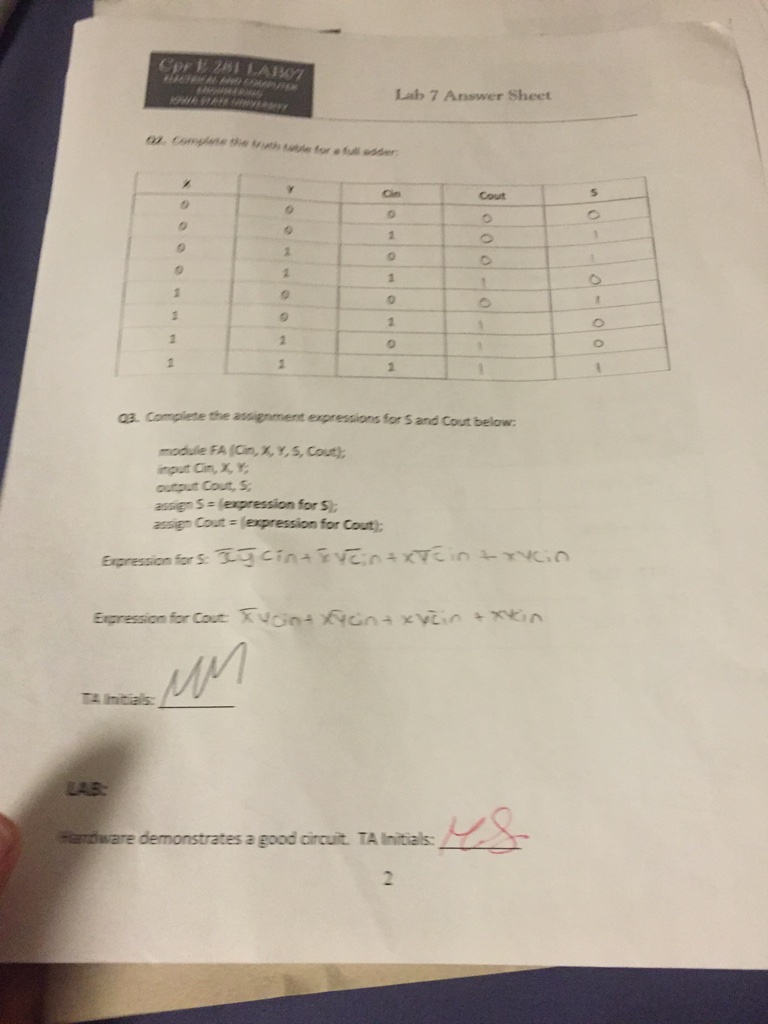 Cpr E 281 LAB07
ELECTRICAL AND COMPUTER
ENGINEERING
IOWA STATE UNIVERSITY
Lab 7 Answer Sheet
Q2. Complete the truth table for a full adder:
X Y Cin Cout S
0 0 0 0 0
0 0 1 0 1
0 1 0 0 1
0 1 1 1 0
1 0 0 0 1
1 0 1 1 0
1 1 0 1 0
1 1 1 1 1
Q3. Complete the assignment expressions for S and Cout below:
module FA (Cin, X, Y, S, Cout);
input Cin, X, Y;
output Cout, S;
assign S = (expression for S);
assign Cout = (expression for Cout);
Expression for S: x̅ y̅ cin + x̅ y c̅i̅n̅ + x y̅ c̅i̅n̅ + xycin
Expression for Cout: x̅ycin + xy̅cin + xyc̅i̅n̅ + xycin
TA Initials: MM
LAB:
Hardware demonstrates a good circuit. TA Initials: MS
2